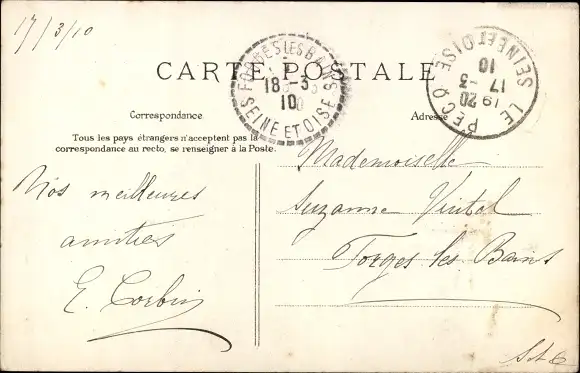 17/3/10
CARTE POSTALE
FORGES LES BAINS
18 -3
10
SEINE ET OISE
LE PECQ
19 20
17 -3
10
SEINE ET OISE
Correspondance
Adresse
Tous les pays étrangers n'acceptent pas la
correspondance au recto, se renseigner à la Poste.
Nos meilleures
amitiés
E. Corbin
Mademoiselle
Suzanne
Forges les Bains
S et O